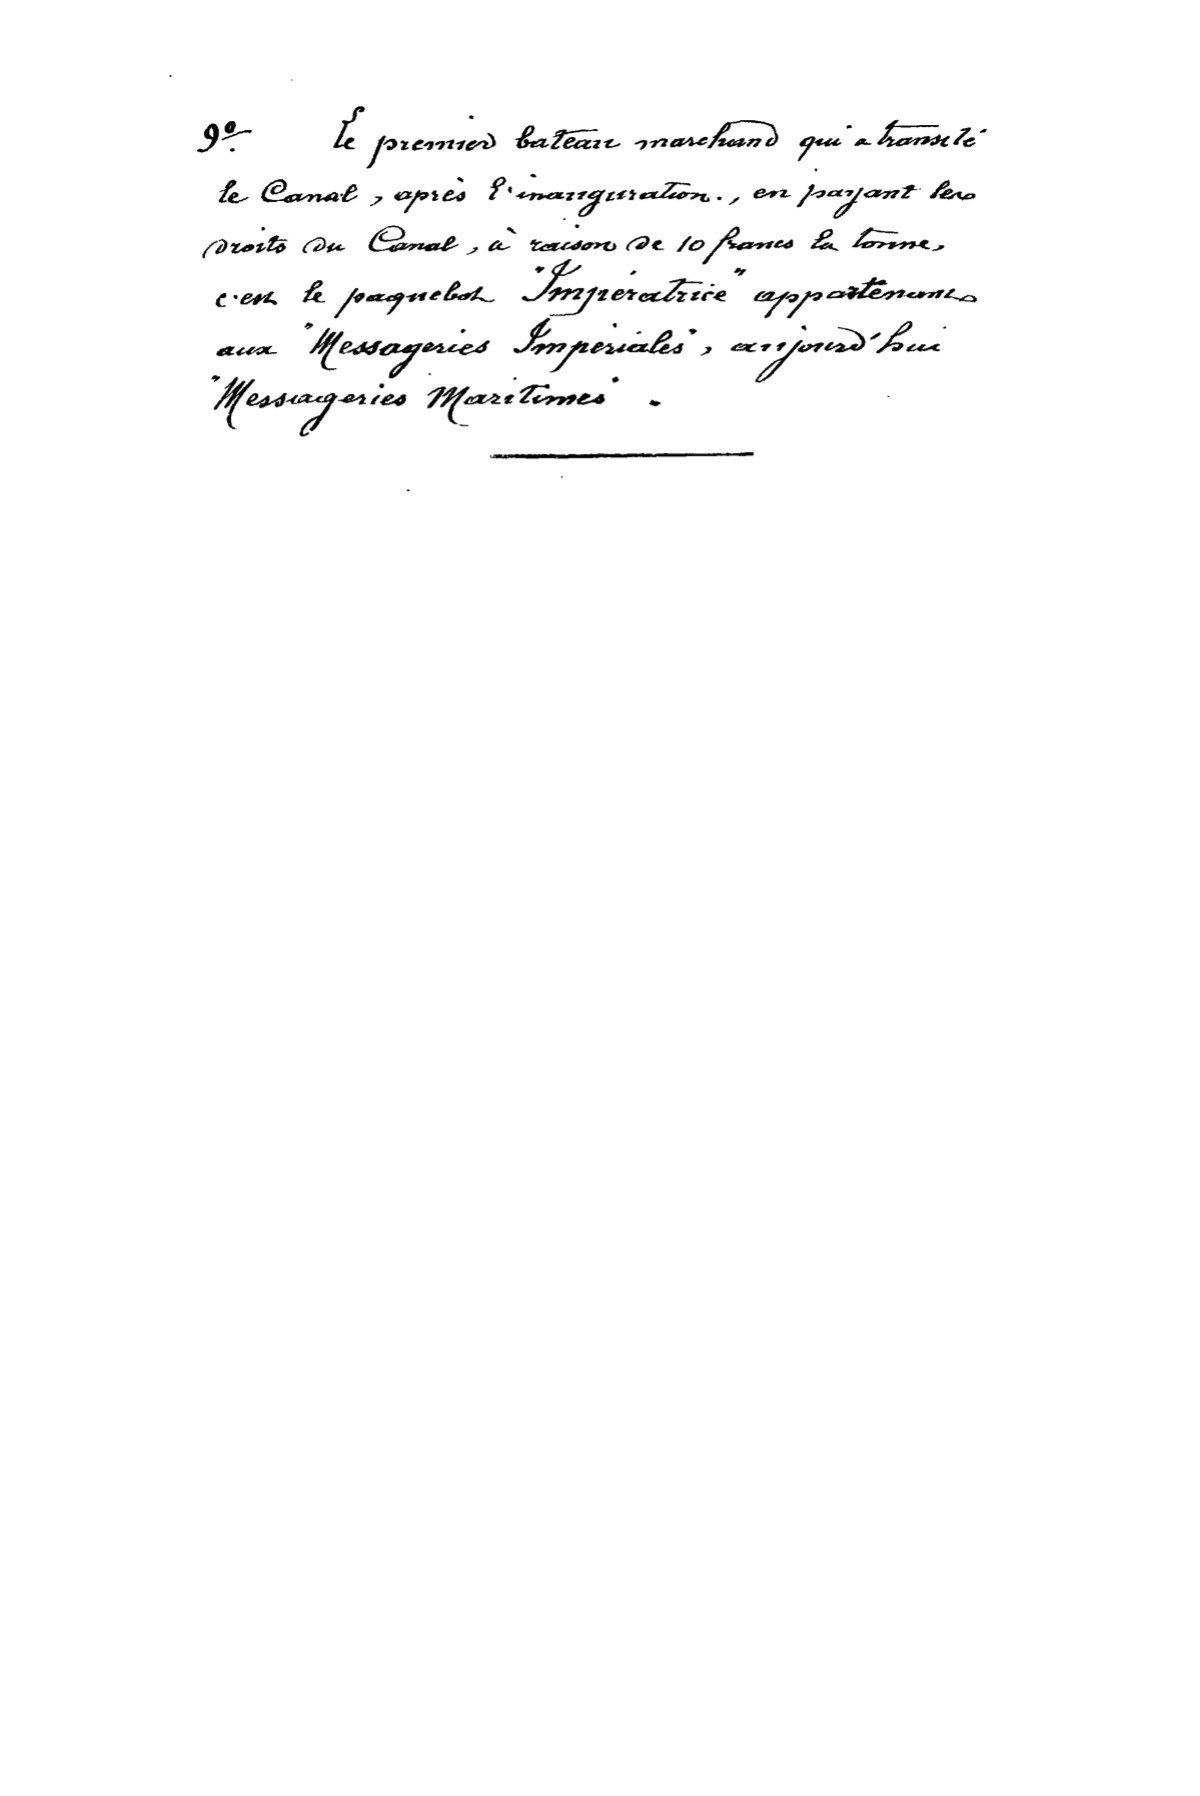 9º. Le premier bateau marchand qui a transité
le Canal, après l'inauguration., en payant les
droits du Canal, à raison de 10 francs la tonne,
c'est le paquebot "Impératrice" appartenant
aux "Messageries Impériales", aujourd'hui
"Messageries Maritimes".